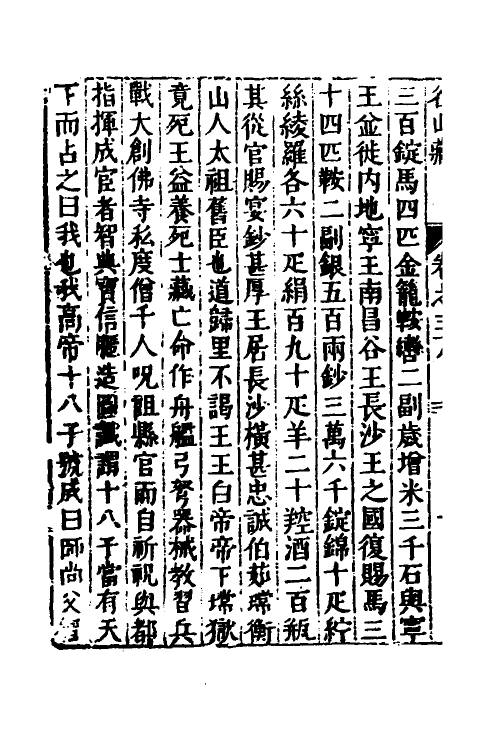 名山藏 卷之三
三百錠馬四匹金籠鞍轡二副歲增米三千石與寧
王並徙內地寧王南昌谷王長沙王之國復賜馬三
十四匹鞍二副銀五百兩鈔三萬六千錠錦十疋紵
絲綾羅各六十疋絹百九十疋羊二十羫酒二百瓶
其從官賜宴鈔甚厚王居長沙橫甚忠誠伯茹瑺衡
山人太祖舊臣也道歸里不謁王王白帝帝下瑺獄
竟死王益養死士藏亡命作舟艦弓弩器械教習兵
戰大創佛寺私度僧千人呪詛縣官而自祈祝與都
指揮成宦者智與寶信賸造圖讖謂十八子當有天
下而占之曰我也我高帝十八子號成曰師尚父